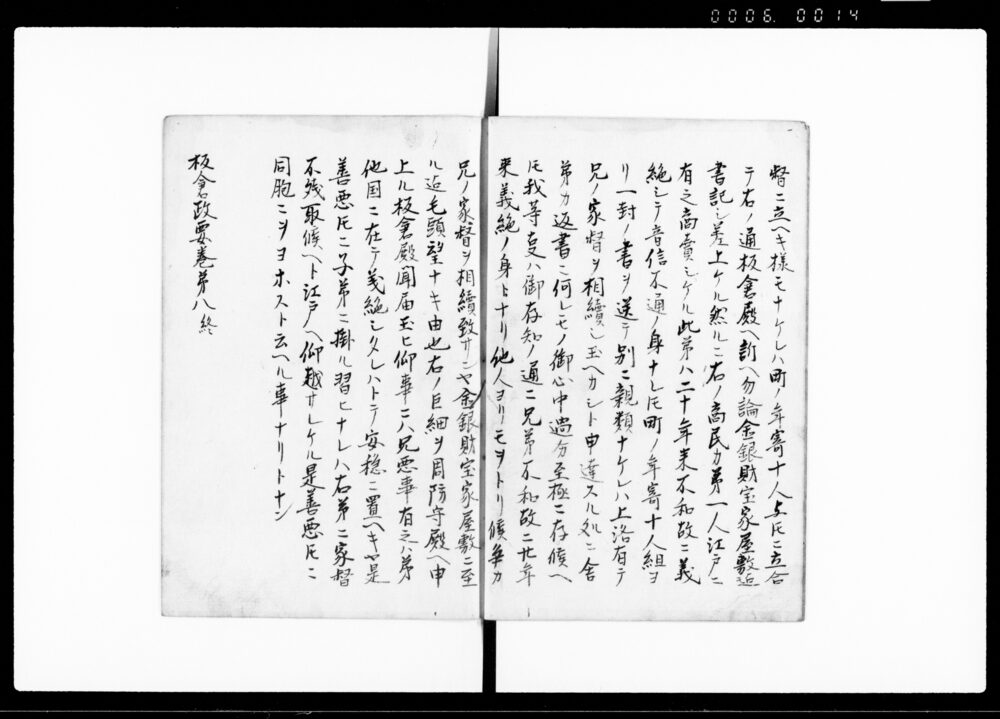 0006. 0014
督ニ立ヘキ様モナケレハ町ノ年寄十人与𪜈ニ立合
テ右ノ通板倉殿ヘ訴ヘ勿論金銀財宝家屋敷迄
書記シ差上ケル然ルニ右ノ商民カ弟一人江戸ニ
有之商賣シケル此弟ハ二十年来不和故ニ義
絶シテ音信不通ノ身ナレ𪜈町ノ年寄十人組ヨ
リ一封ノ書ヲ送テ別ニ親類ナケレハ上洛有テ
兄ノ家督ヲ相續シ玉ヘカシト申達スル処ニ舎
弟カ返書ニ何レモノ御心中過分至極ニ存候ヘ
𪜈我等𫝆ハ御存知ノ通ニ兄弟不和故ニ廿年
来義絶ノ身トナリ他人ヨリモヲトリ候
兄ノ家督ヲ相續致サンヤ金銀財宝家屋敷ニ至
ル迄毛頭望ナキ由也右ノ巨細ヲ周防守殿ヘ申
上ル板倉殿聞届玉ヒ仰事ニハ兄悪事有之ハ弟
他国ニ在テ義絶シ久シレハトテ安穏ニ置ヘキヤ是
善悪𪜈ニ子弟ニ掛ル習ヒナレハ右弟ニ家督
不残取候ヘト江戸ヘ仰越サレケル是善悪𪜈ニ
同胞ニヲヨホスト云ヘル事ナリトナン
板倉政要巻第八終